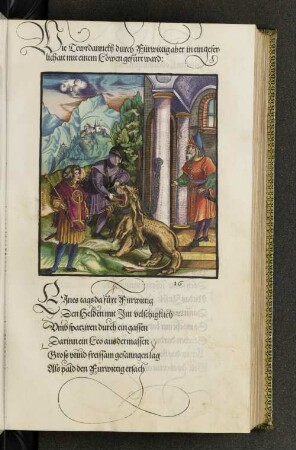 Wie Tewrdannckh durch Fürwittig aber in ein gefer
lichait mit einem Löwen gefürt ward:
16
Eines tags da fürt Fürwittig
Den Helden mit Im velschigklich
Vmb spatziren durch ein gassen
Darinn ein Leo aus der massen
Groß vnnd freissam gefanngen lag
Als pald den Fürwittig ersach